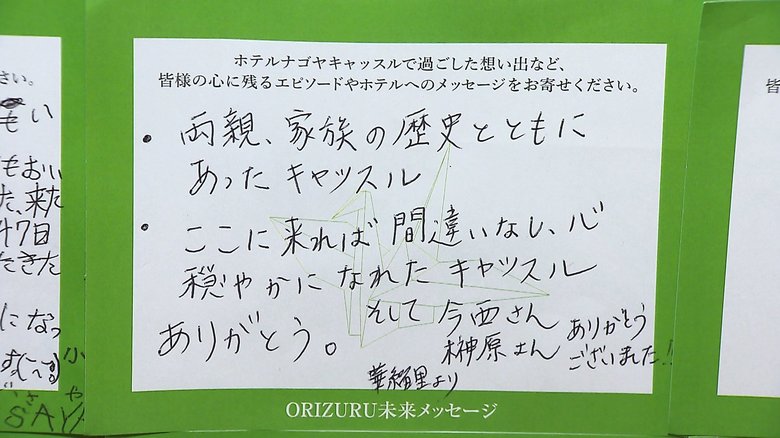 ホテルナゴヤキャッスルで過ごした想い出など、
皆様の心に残るエピソードやホテルへのメッセージをお寄せください。
・両親、家族の歴史とともに
あったキャッスル
・ここに来れば間違いなし、心
穏やかになれたキャッスル
ありがとう。
そして今西さん
榊原さん
ありがとう
ございました!!
より
ORIZURU未来メッセージ
さい。
もい
もおい
た、来た
月7日
できた
になっ
SAY
皆